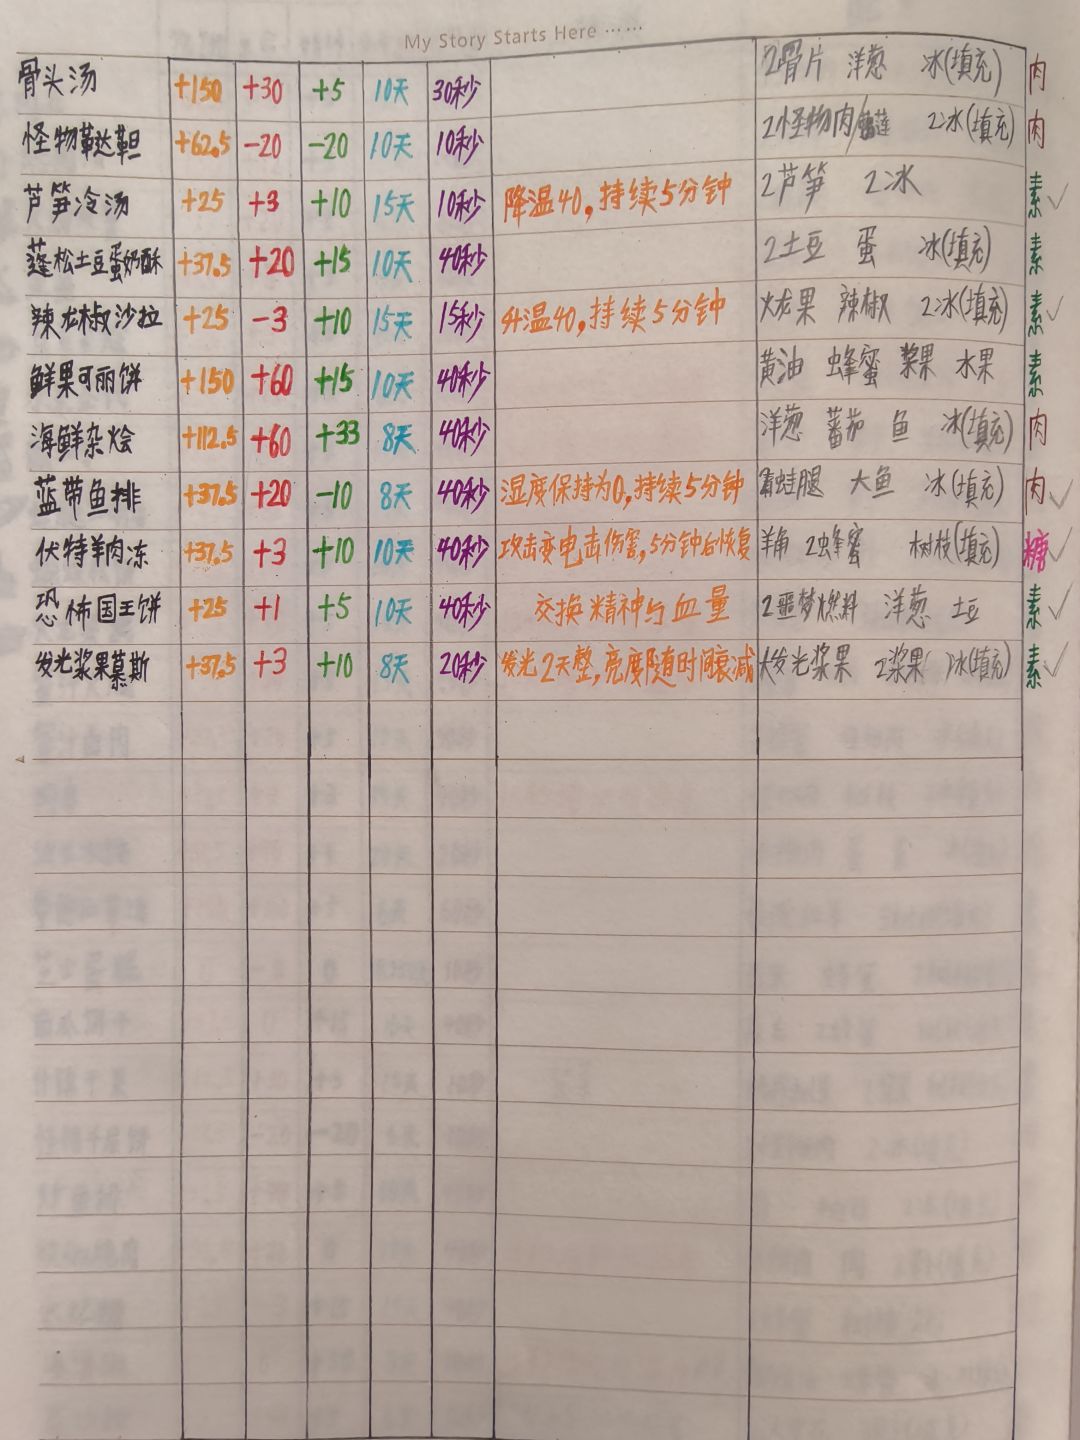 My Story Starts Here ······
骨头汤 +150 +30 +5 10天 30秒 2骨片 洋葱 冰(填充) 肉
怪物鞑靼 +62.5 -20 -20 10天 10秒 2怪物肉 2冰(填充) 肉
芦笋冷汤 +25 +3 +10 15天 10秒 降温40,持续5分钟 2芦笋 2冰 素✓
蓬松土豆蛋奶酥 +37.5 +20 +15 10天 40秒 2土豆 蛋 冰(填充) 素
辣龙椒沙拉 +25 -3 +10 15天 15秒 升温40,持续5分钟 火龙果 辣椒 2冰(填充) 素✓
鲜果可丽饼 +150 +60 +15 10天 40秒 黄油 蜂蜜 浆果 水果 素
海鲜杂烩 +112.5 +60 +33 8天 40秒 洋葱 蕃茄 鱼 冰(填充) 肉
蓝带鱼排 +37.5 +20 -10 8天 40秒 湿度保持为0,持续5分钟 蛙腿 大鱼 冰(填充) 肉✓
伏特羊肉冻 +37.5 +3 +10 10天 40秒 攻击变电击伤害,5分钟后恢复 羊角 2蜂蜜 树枝(填充) 糖✓
恐怖国王饼 +25 +1 +5 10天 40秒 交换精神与血量 2噩梦燃料 洋葱 土豆 素✓
发光浆果慕斯 +37.5 +3 +10 8天 20秒 发光2天整,亮度随时间衰减 大发光浆果 2浆果( )冰(填充) 素✓